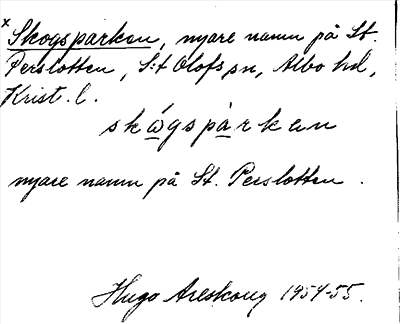 x Skogsparken, nyare namn på St.
Perslotten, S:t Olofs sn, Albo hd,
Krist. l.
skógsparken
nyare namn på St. Perslotten.
Hugo Areskoug 1954-55.